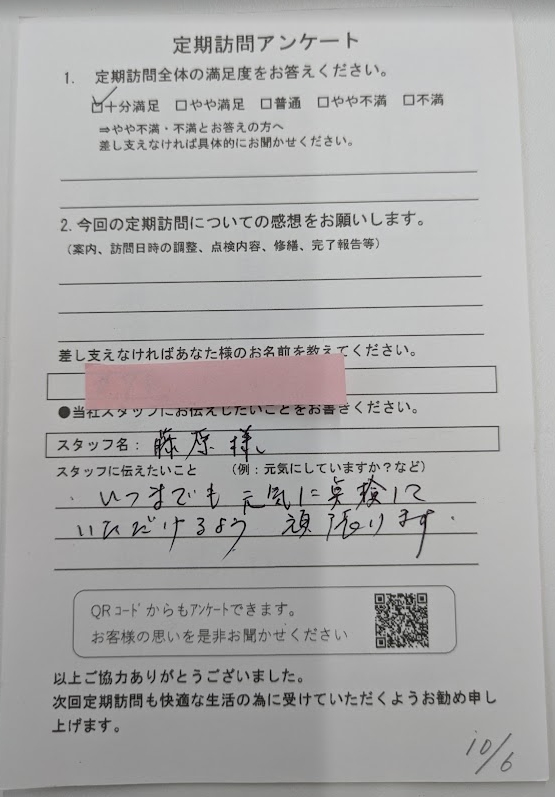 定期訪問アンケート
1. 定期訪問全体の満足度をお答えください。
☑十分満足 □やや満足 □普通 □やや不満 □不満
⇒やや不満・不満とお答えの方へ
差し支えなければ具体的にお聞かせください。
2. 今回の定期訪問についての感想をお願いします。
(案内、訪問日時の調整、点検内容、修繕、完了報告等)
差し支えなければあなた様のお名前を教えてください。
●当社スタッフにお伝えしたいことをお書きください。
スタッフ名: 藤原様
スタッフに伝えたいこと (例:元気にしていますか?など)
いつまでも元気に点検して
いただけるよう 頑張ります.
QRコードからもアンケートできます。
お客様の思いを是非お聞かせください
以上ご協力ありがとうございました。
次回定期訪問も快適な生活の為に受けていただくようお勧め申し
上げます。
10/6